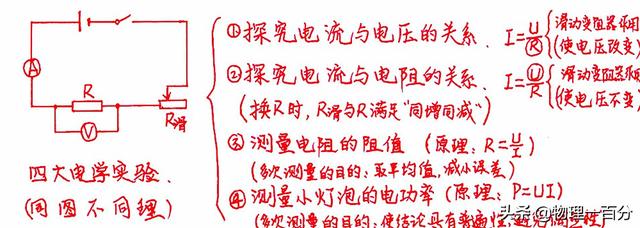 A
R
V
R滑
四大电学实验.
(同图不同理)
①探究电流与电压的关系. I=U/R {滑动变阻器作用
(使电压改变)
②探究电流与电阻的关系. I=U/R {滑动变阻器作用
(换R时,R滑与R满足"同增同减") (使电压不变)
③测量电阻的阻值 (原理:R=U/I)
(多次测量的目的:取平均值,减小误差)
④测量小灯泡的电功率 (原理:P=UI)
(多次测量的目的:使结论具有普遍性,
头条@物理一百分